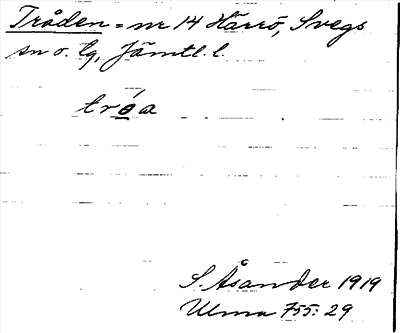 Tråden = nr 14 Härrö, Svegs
sn o. tg, Jämtl. l.
tróa
S. Åsander 1919
Ulma 755:29